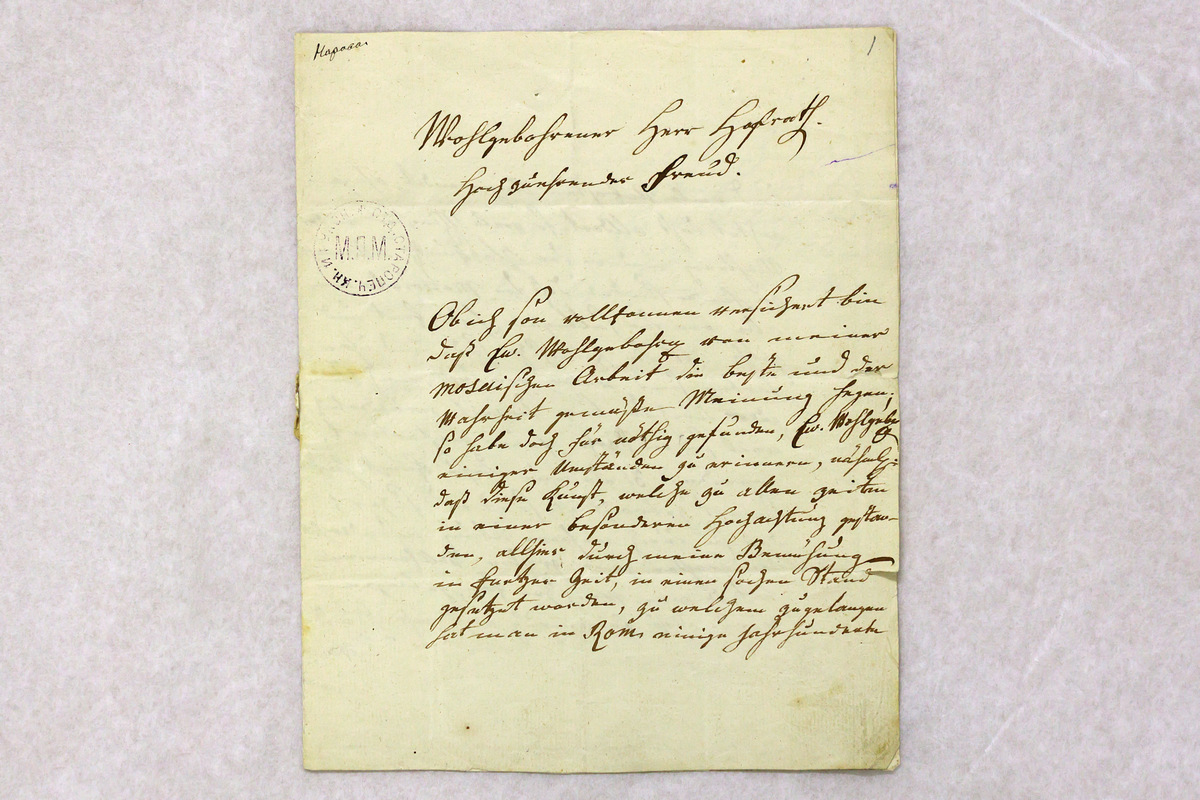 1
Wohlgebohrener Herr Hofrath.
Hochzuehrender Freud.
М.Л.М.
Ob ich son vollkonnen versichert bin
daß Ew. Wohlgebohrn von meiner
mosaischen Arbeit die beste und der
Wahrheit gemäße Meinung hegen;
so habe doch für nöthig gefunden, Ew. Wohlgeb.
einiger Umständen zu erinnern, nähml:
daß diese Kunst, welche zu allen zeiten
in einer besonderen Hochachtung gestan-
den, allhier durch meine Bemühung
in kurtzer Zeit, in einen sochen Stand
gesetzet worden, zu welchem zugelangen
hat man in Rom einige Jahrhunderte